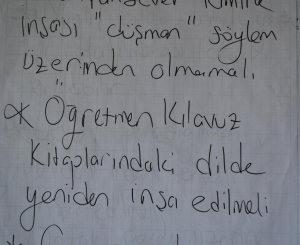 inşası "düşman" söylem
üzerinden olmamalı
* Öğretmen Kılavuz
Kitaplarındaki dilde
yeniden inşa edilmeli